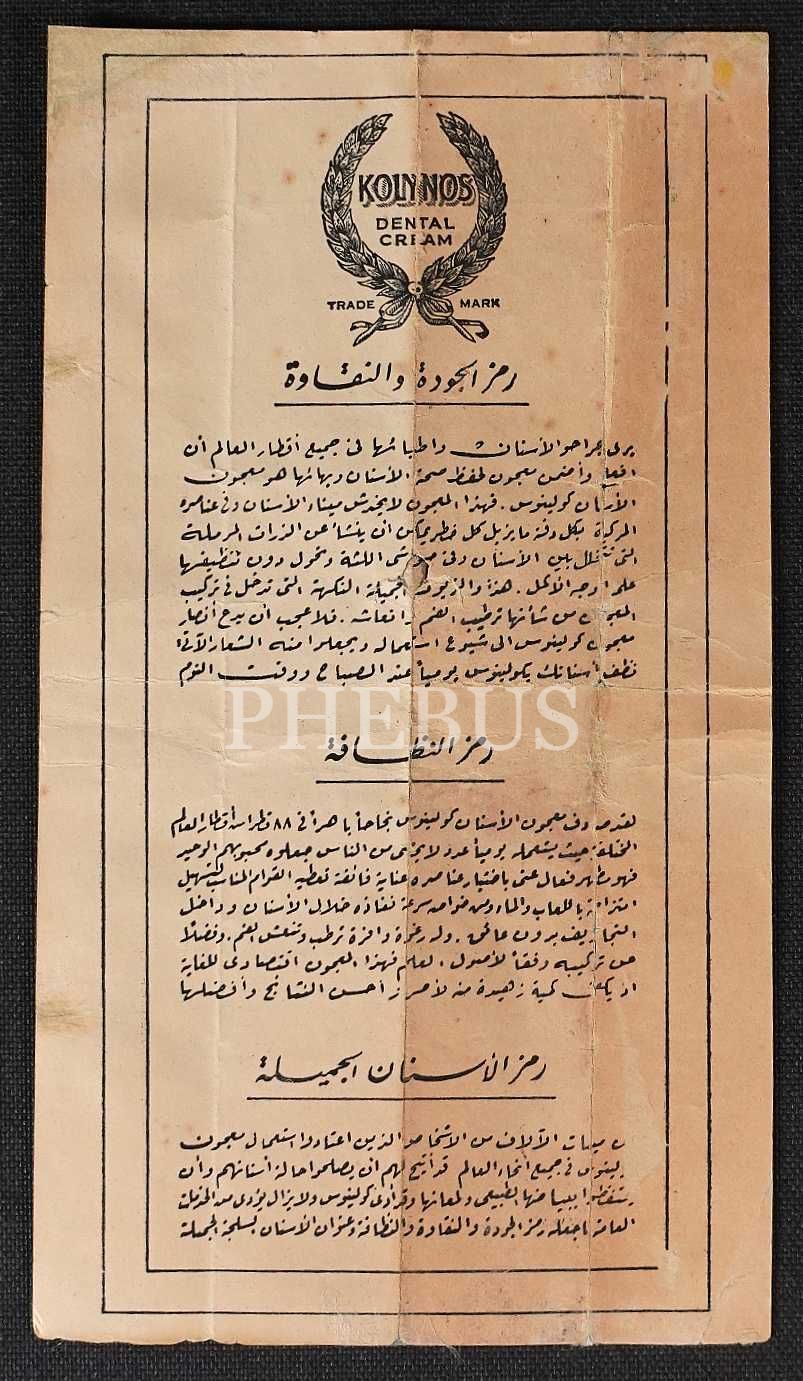 KOLYNOS
DENTAL
CREAM
TRADE MARK
رمز الجودة والنقاوة
يرى جراحو الأسنان واطبائها فى جميع أقطار العالم أن
وأضمن معجون لحفظ صحة الأسنان وبهائها هو معجون
كولينوس. فهذا المعجون لا يخدش ميناء الأسنان وفى عناصره
المركبة بكل دقة ما يزيل كل خطر يمكن ان ينشأ عن الذرات الرملة
التى تتخلل بين الأسنان وفى اللثة وتحول دون تنظيفها
على الأكمل. هذا والزيوت الجميلة النكهة التى تدخل فى تركيب
المعجون من شأنها ترطيب الفم وانعاشه. فلا عجب ان يدع أنصار
معجون كولينوس الى شيوع استعماله ويجعلوا منه الشعار الآتى
نظف أسنانك بكولينوس يومياً عند الصباح ووقت النوم
PHEBUS
رمز النظافة
لقد صادف معجون الأسنان كولينوس نجاحاً باهراً فى ٨٨ قطر من أقطار العالم
المختلفة حيث يستعمله يومياً عدد لا يحصى من الناس جعلوه محبوبهم الوحيد
فهو مطهر فعال عنى باختيار عناصره عناية فائقة تعطيه القوام المناسب لتسهيل
امتزاجه باللعاب والماء ومن خواصه سرعة نفاذه خلال الأسنان وداخل
التجاويف بدون عائق. وله رغوة وافرة ترطب وتنعش الفم. وفضلاً
عن تركيبه وفقاً لأصول العلم فهذا المعجون اقتصادى للغاية
اذ يكفى كمية زهيدة منه لاحراز أحسن النتائج وأفضلها
رمز الأسنان الجميلة
مئات الآلاف من الأشخاص الذين اعتادوا استعمال معجون
فى جميع انحاء العالم قد أتيح لهم ان يصلحوا حالة أسنانهم وأن
ببياضها الطبيعى ولمعانها وقد أدى كولينوس ولا يزال يؤدى من الخدمات
العامة ما جعله رمز الجودة والنقاوة والنظافة وعنوان الأسنان الجميلة